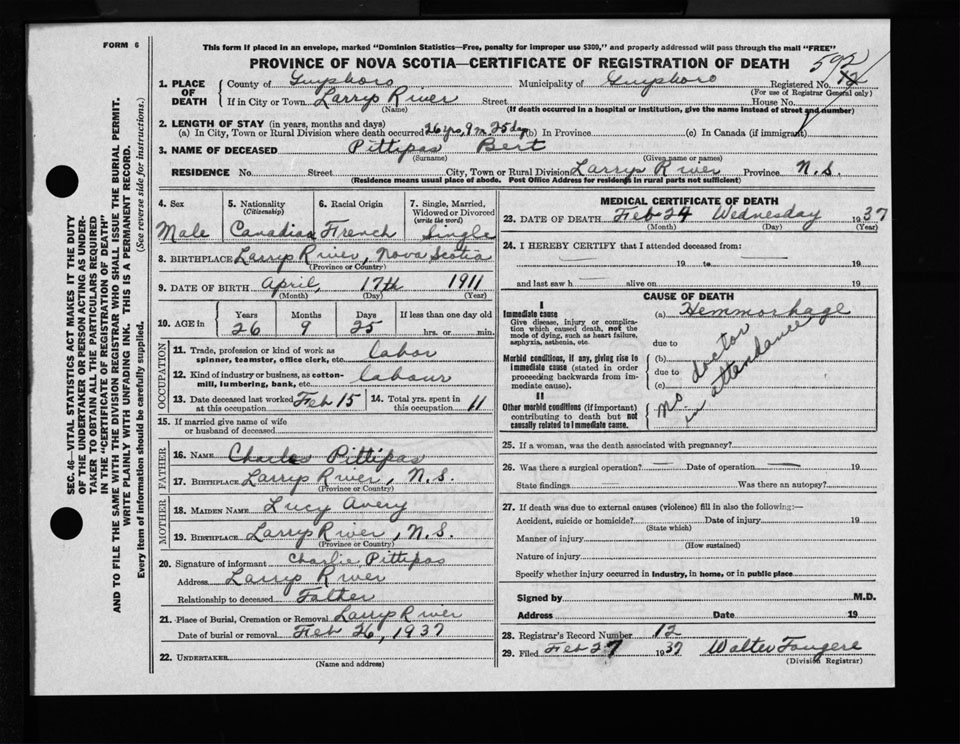 FORM 6
This form if placed in an envelope, marked "Dominion Statistics—Free, penalty for improper use $300," and properly addressed will pass through the mail "FREE"
PROVINCE OF NOVA SCOTIA—CERTIFICATE OF REGISTRATION OF DEATH
592
1. PLACE OF DEATH County of Guysboro Municipality of Guysboro Registered No. 12
(For use of Registrar General only)
If in City or Town Larrys River Street House No.
(Name) (If death occurred in a hospital or institution, give the name instead of street and number)
2. LENGTH OF STAY (in years, months and days)
(a) In City, Town or Rural Division where death occurred 26 yrs, 9 m 25 day (b) In Province (c) In Canada (if immigrant)
3. NAME OF DECEASED Pittipas Bert
(Surname) (Given name or names)
RESIDENCE No. Street City, Town or Rural Division Larrys River Province N.S.
(Residence means usual place of abode. Post Office Address for residents in rural parts not sufficient)
4. Sex 5. Nationality (Citizenship) 6. Racial Origin 7. Single, Married, Widowed or Divorced (write the word)
Male Canadian French Single
8. BIRTHPLACE Larrys River, Nova Scotia
(Province or Country)
9. DATE OF BIRTH April, 17th 1911
(Month) (Day) (Year)
10. AGE in Years Months Days If less than one day old
26 9 25 hrs. or min.
OCCUPATION
11. Trade, profession or kind of work as spinner, teamster, office clerk, etc. labor
12. Kind of industry or business, as cotton-mill, lumbering, bank, etc. labour
13. Date deceased last worked at this occupation Feb 15 14. Total yrs. spent in this occupation 11
15. If married give name of wife or husband of deceased
FATHER
16. NAME Charles Pittipas
17. BIRTHPLACE Larrys River, N.S.
(Province or Country)
MOTHER
18. MAIDEN NAME Lucy Avery
19. BIRTHPLACE Larrys River, N.S.
(Province or Country)
20. Signature of informant Charlie Pittipas
Address Larrys River
Relationship to deceased Father
21. Place of Burial, Cremation or Removal Larrys River
Date of burial or removal Feb 26, 1937
22. UNDERTAKER
(Name and address)
MEDICAL CERTIFICATE OF DEATH
23. DATE OF DEATH Feb 24 Wednesday 1937
(Month) (Day) (Year)
24. I HEREBY CERTIFY that I attended deceased from:
19 to 19
and last saw h alive on 19
CAUSE OF DEATH
I
Immediate cause
Give disease, injury or complication which caused death, not the mode of dying, such as heart failure, asphyxia, asthenia, etc.
(a) Hemmorhage
due to
Morbid conditions, if any, giving rise to immediate cause (stated in order proceeding backwards from immediate cause).
(b)
due to
(c)
no doctor in attendance
II
Other morbid conditions (if important) contributing to death but not causally related to immediate cause.
25. If a woman, was the death associated with pregnancy?
26. Was there a surgical operation? Date of operation 19
State findings Was there an autopsy?
27. If death was due to external causes (violence) fill in also the following:—
Accident, suicide or homicide? Date of injury 19
(State which)
Manner of injury
(How sustained)
Nature of injury
Specify whether injury occurred in industry, in home, or in public place
Signed by M.D.
Address Date 19
28. Registrar's Record Number 12
29. Filed Feb 27 1937 Walter Fougere
(Division Registrar)
SEC. 46—VITAL STATISTICS ACT MAKES IT THE DUTY
OF THE UNDERTAKER OR PERSON ACTING AS UNDER-
TAKER TO OBTAIN ALL THE PARTICULARS REQUIRED
IN THE "CERTIFICATE OF REGISTRATION OF DEATH"
AND TO FILE THE SAME WITH THE DIVISION REGISTRAR WHO SHALL ISSUE THE BURIAL PERMIT.
WRITE PLAINLY WITH UNFADING INK. THIS IS A PERMANENT RECORD.
Every item of information should be carefully supplied. (See reverse side for instructions.)